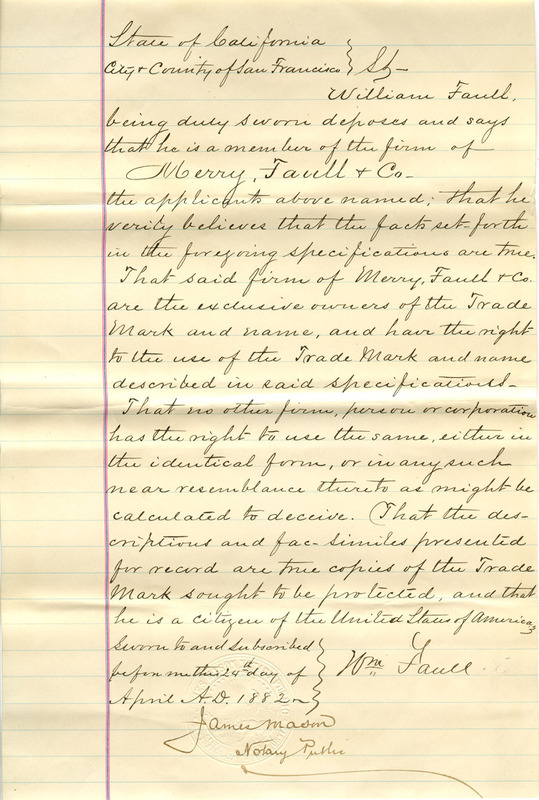 State of California
City & County of San Francisco } SS
William Faull,
being duly sworn deposes and says
that he is a member of the firm of
Merry, Faull & Co.
the applicants above named; that he
verily believes that the facts set forth
in the foregoing specifications are true.
That said firm of Merry, Faull & Co.
are the exclusive owners of the Trade
Mark and name, and have the right
to the use of the Trade Mark and name
described in said specifications.
That no other firm, person or corporation
has the right to use the same, either in
the identical form, or in any such
near resemblance thereto as might be
calculated to deceive. That the des-
criptions and fac-similes presented
for record are true copies of the Trade
Mark sought to be protected, and that
he is a citizen of the United States of America,
Sworn to and subscribed
before me this 24th day of } Wm Faull
April A.D. 1882
James Mason
Notary Public